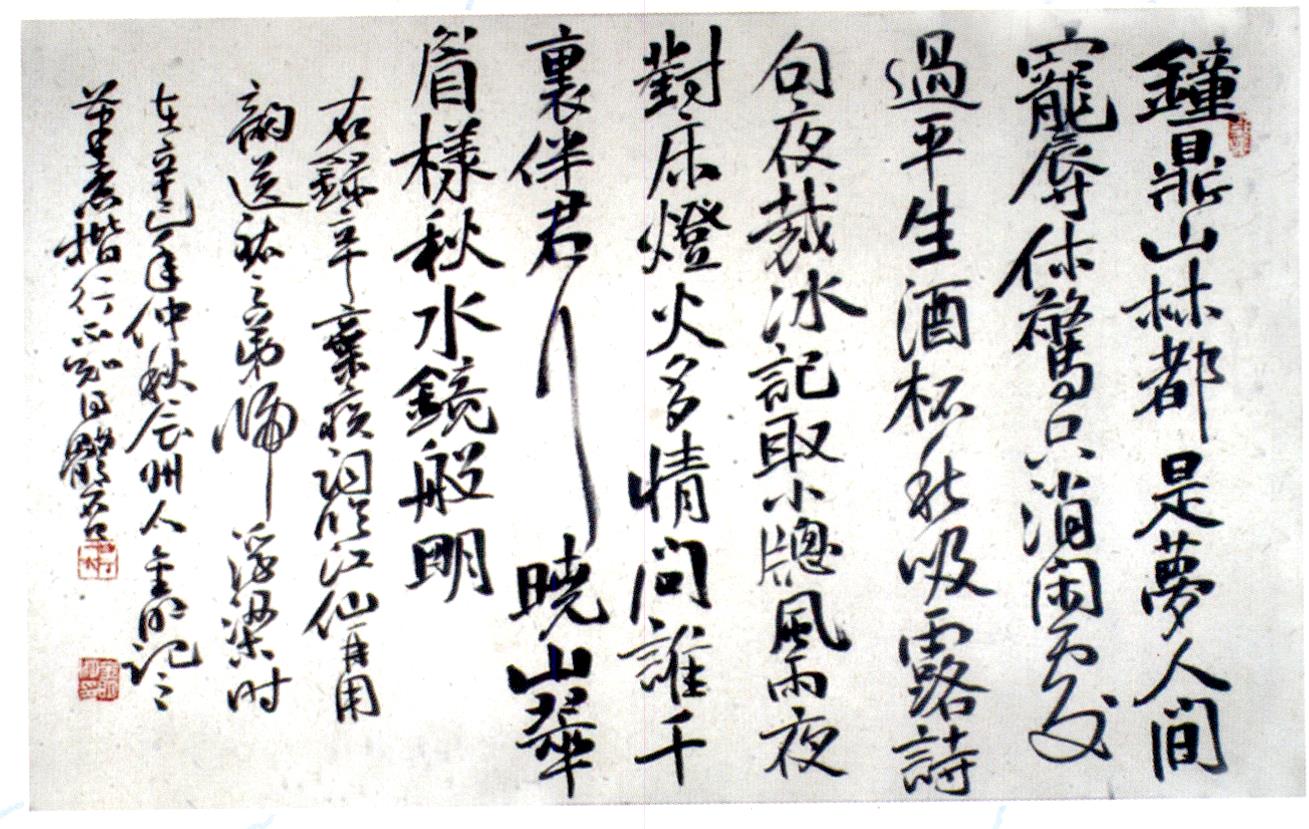 鐘鼎山林都是夢人間
寵辱休驚只消閑處
過平生酒杯秋吸露詩
句夜裁冰記取小窗風雨夜
對床燈火多情問誰千
裏伴君行曉山翠
眉樣秋水鏡般明
右錄辛棄疾詞臨江仙再用
韻送祐之弟歸浮梁时
在辛巳年仲秋辰州人金明記之